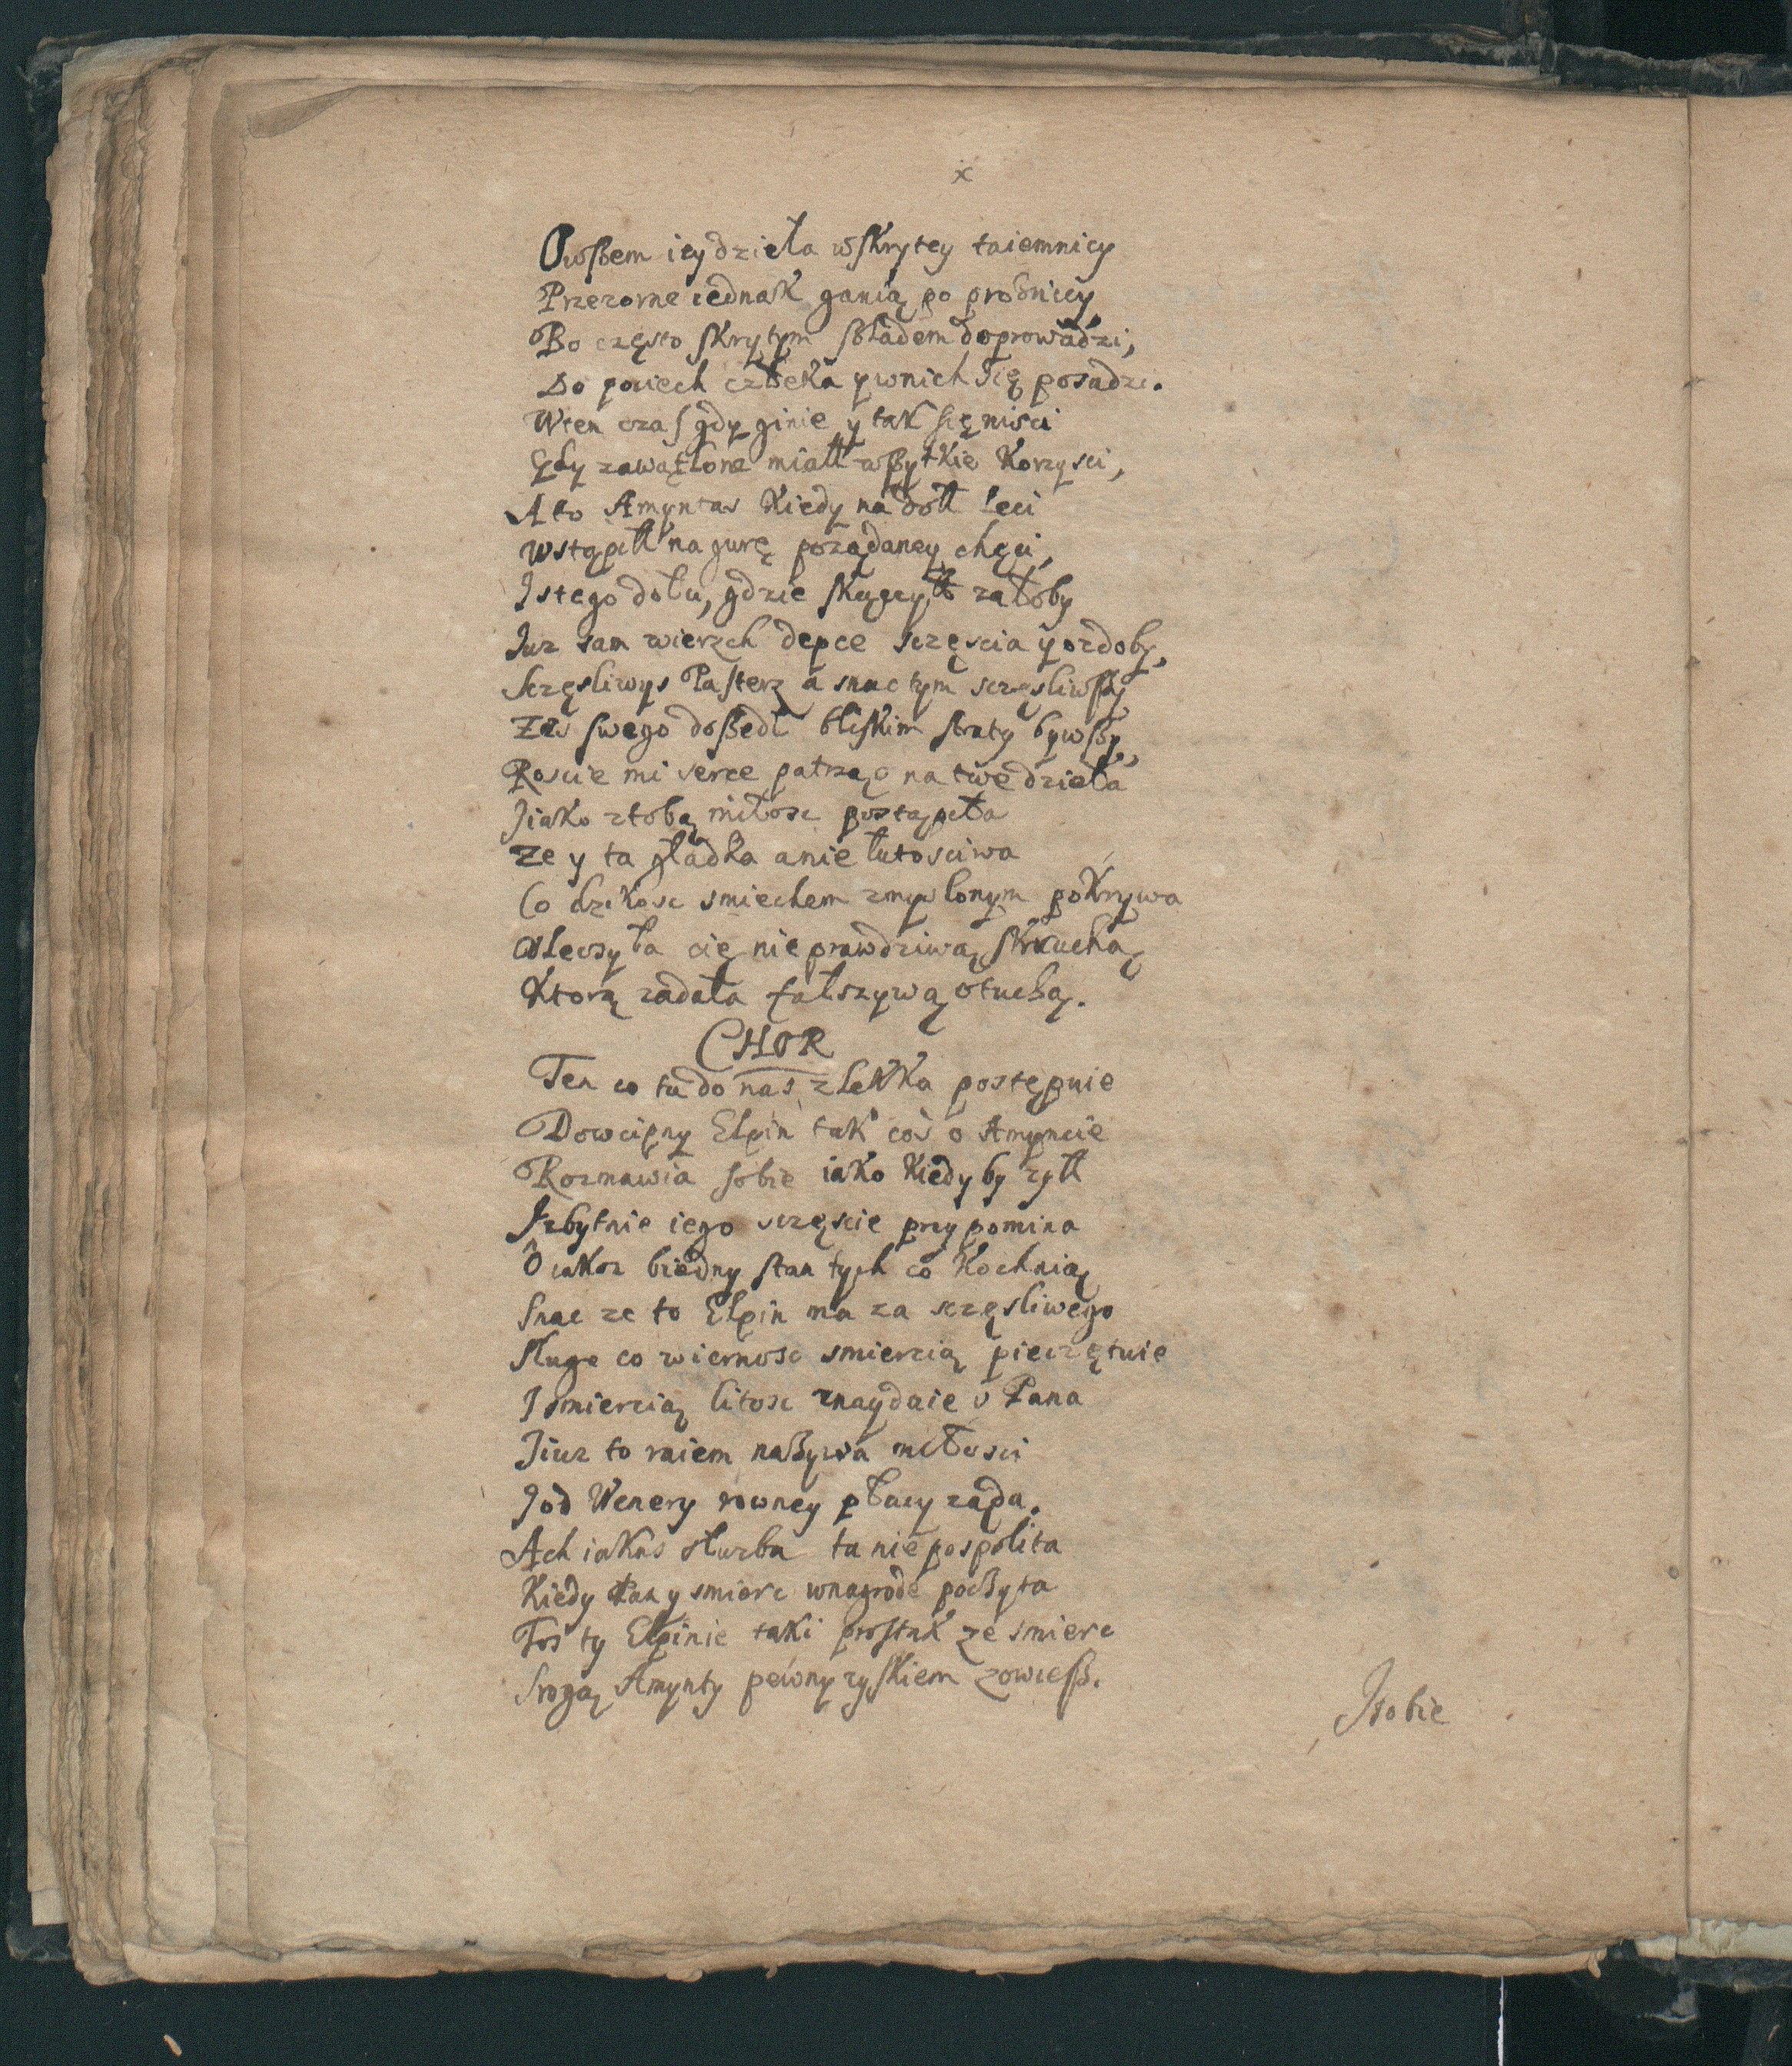 x
Owßem iey dzieła w skrytey taiemnicy
Przezorne iednak ganią po prożnicy,
Bo często skrytym ßladem doprowadzi,
Do pociech człeka y wnich się posadzi.
Wten czas gdy ginie y tak się nisci
Gdy zawątlone miałł wßytkie Korzysci,
A to Amyntas Kiedy na dołł leci
Wstąpiłł na gurę poządaney chęci,
I stego dołu, gdzie załoby
Iuz sam wierzch depce sczęscia y ozdoby,
Sczęsliwys Pasterz a snac tym sczęsliwßy
Zes swego doßedł bliskim straty bywßy,
Roscie mi serce patrząc na twe dzieła
I iako ztobą miłosc postąpiła
Ze y ta gładka a nie lutosciwa
Co dzikosc smiechem zmyslonym pokrywa
Uleczyła cię nie prawdziwą skruchą
Ktorą zadała fałszywą otuchą.
CHOR
Ten co tu do nas zlekka postępuie
Dowcipny Elpin tak cos o Amyncie
Rozmawia sobie iako Kiedy by zyłł
I zbytnie iego sczęscie przypomina
O iakoz biedny stan tych co Kochaią
Snac ze to Elpin ma za sczęsliwego
Sługe co wiernosc smiercią pieczętuie
I smiercią litosc znayduie u Pana
I iuz to raiem nazywa miłosci
I od Wenery rowney płacy ząda.
Ach iakas słuzba ta nie pospolita
Kiedy Pan y smierc wnagrode poczyta
Tos ty Elpinie taki prostak ze smierc
Srogą Amynty pewny zyskiem zowieß.
I tobie